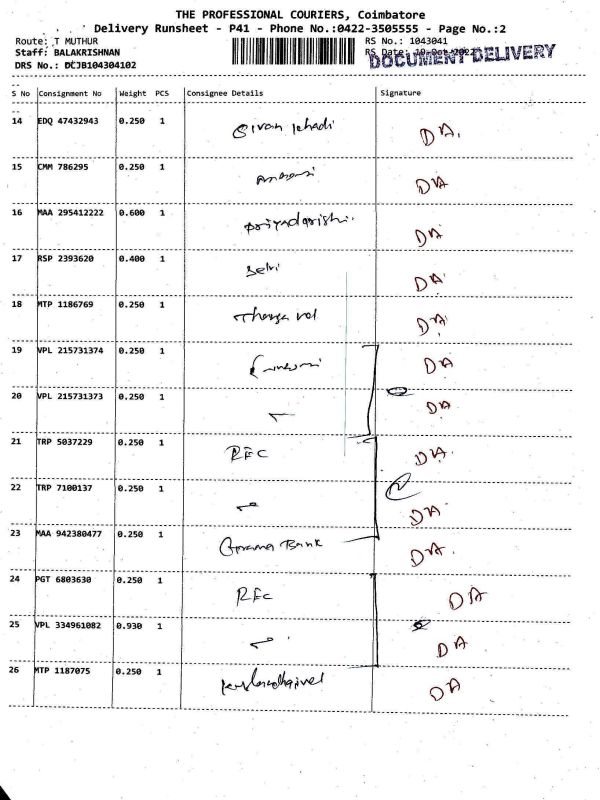 THE PROFESSIONAL COURIERS, Coimbatore
Delivery Runsheet - P41 - Phone No.:0422-3505555 - Page No.:2
Route: T MUTHUR RS No.: 1043041
Staff: BALAKRISHNAN RS Date: 10-Oct-2022
DOCUMENT DELIVERY
DRS No.: DCJB104304102
S No Consignment No Weight PCS Consignee Details Signature
14 EDQ 47432943 0.250 1 DA.
15 CMM 786295 0.250 1 DA
16 MAA 295412222 0.600 1 Priyadarishi. DA
17 RSP 2393620 0.400 1 Selvi DA
18 MTP 1186769 0.250 1 DA
19 VPL 215731374 0.250 1 DA
20 VPL 215731373 0.250 1 DA
21 TRP 5037229 0.250 1 REC DA.
22 TRP 7100137 0.250 1 DA.
23 MAA 942380477 0.250 1 Bank DA.
24 PGT 6803630 0.250 1 REC DA
25 VPL 334961082 0.930 1 DA
26 MTP 1187075 0.250 1 DA